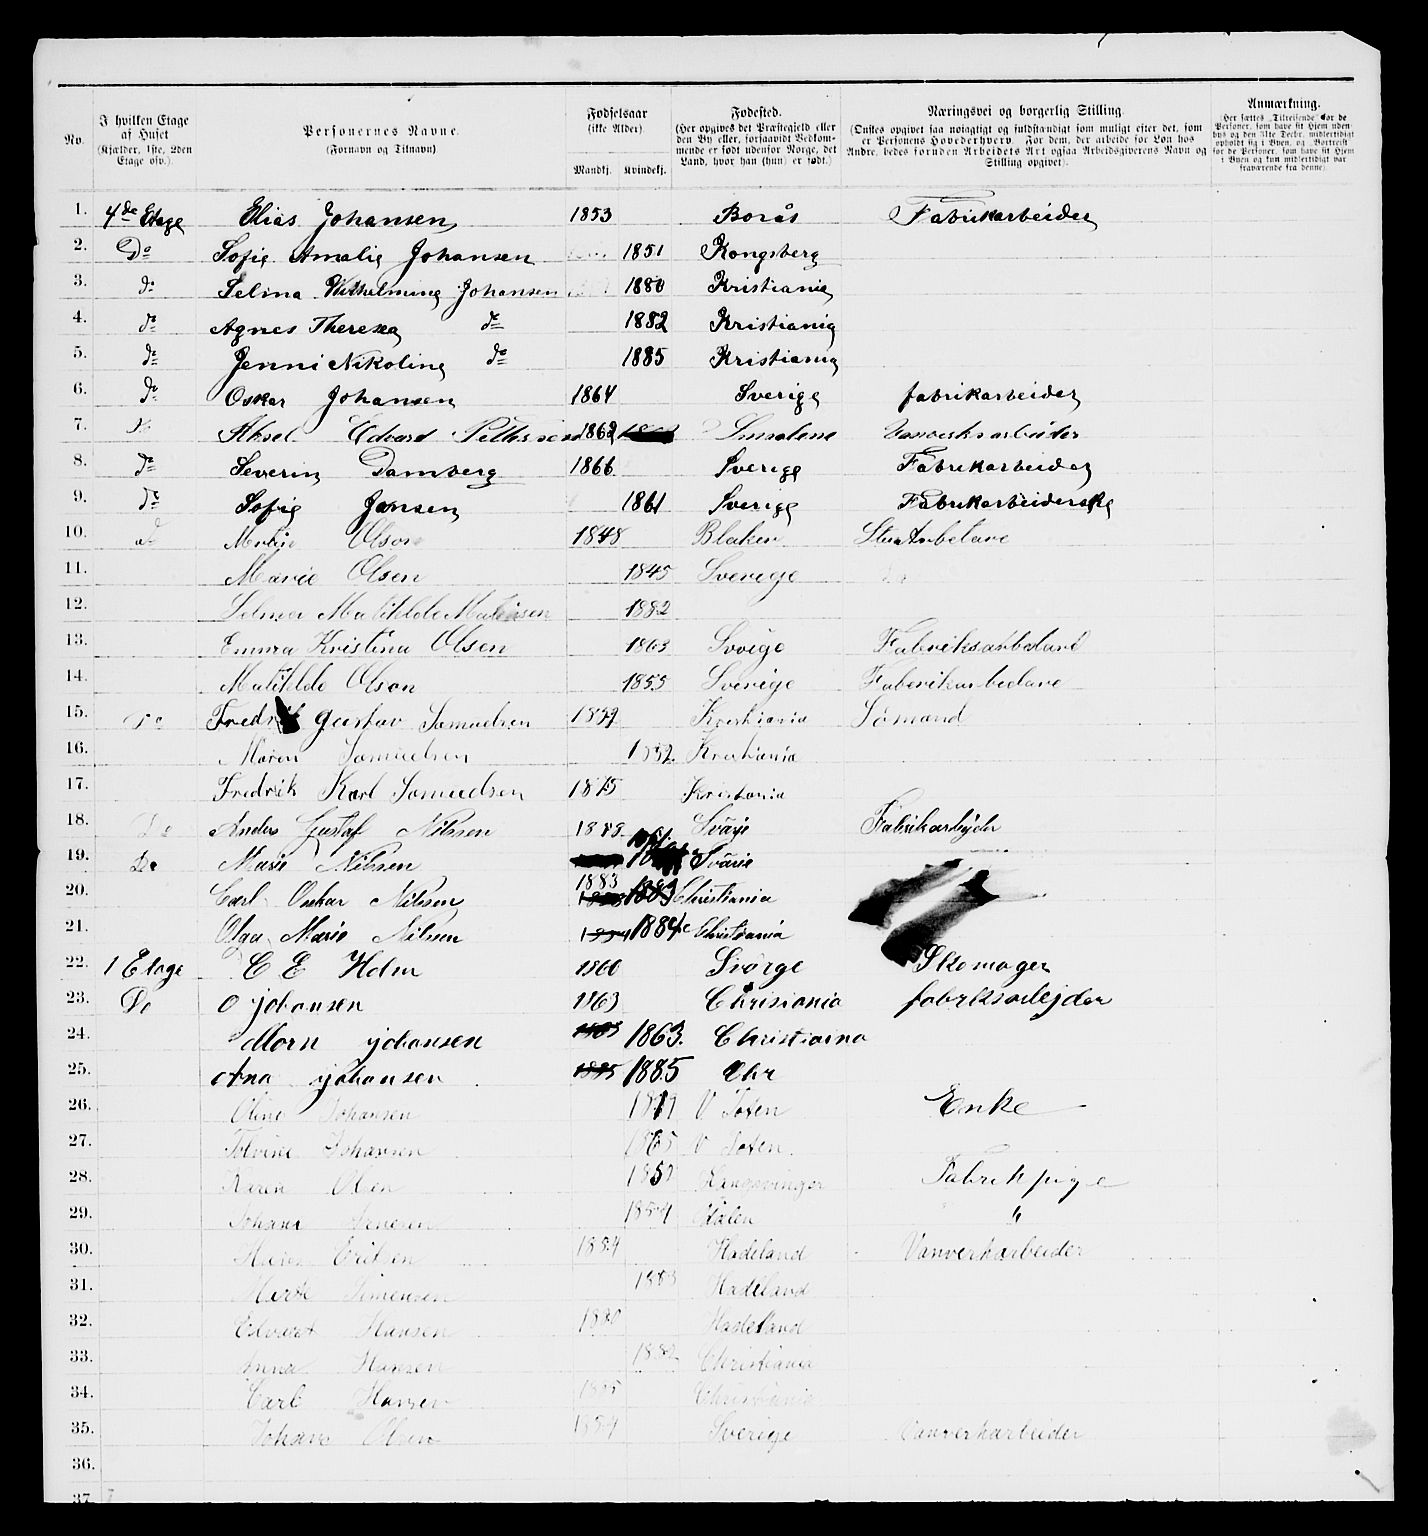 No. I hvilken Etage af Huset (Kjælder, 1ste, 2den Etage osv.). Personernes Navne. (Fornavn og Tilnavn) Fødselsaar (ikke Alder). Mandkj. Kvindekj. Fødested. (Her opgives det Præstegjeld eller den By eller, forsaavidt Vedkommende er født udenfor Norge, det Land, hvor han (hun) er født.) Næringsvei og borgerlig Stilling. (Ønskes opgivet saa nøiagtigt og fuldstændigt som muligt efter det, som er Personens Hovederhverv. For dem, der arbeide for Løn hos Andre, bedes foruden Arbeidets Art ogsaa Arbeidsgiverens Navn og Stilling opgivet). Anmærkning. (Her sættes „Tilreisende“ for de Personer, som have sit Hjem udenbys og den 31te Decbr. midlertidigt opholdt sig i Byen, og „Bortreist“ for de Personer, som have sit Hjem i Byen og kun midlertidigt var fraværende fra denne).
1. 4de Etage Elias Johansen 1853 Borås Fabrikarbeider
2. Do Sofie Amalie Johansen 1851 Kongsberg
3. do Selma Wilhelmine Johansen 1880 Kristiania
4. do Agnes Theresea do 1882 Kristiania
5. do Jenni Nikoline do 1885 Kristiania
6. do Oskar Johansen 1864 Sverige fabrikarbeider
7. Aksel Edvard Pettersen 1862 Smalene
8. do Severin Damberg 1866 Sverige Fabrikarbeider
9. do Sofie Jansen 1861 Sverige Fabrikarbeiderske
10. Olson 1848 Blaker
11. Marie Olsen 1845 Sverige
12. Selma Matilde 1882
13. Emma Kristina Olsen 1863 Svoige Fabriksarbetare
14. Matilde Olson 1855 Sverige Fabrikarbetare
15. Do Fredrik Gustav Samuelsen 1859 Kristiania Sømand
16. Maren Samuelsen 1852 Kristiania
17. Fredrik Karl Samuelsen 1875 Kristiania
18. Do Anders Gustaf Nilsen Fabrikarbejder
19. Do Marie Nilsen
20. Carl Oskar Nilsen 1883 1883 Christiania
21. Olga Marie Nilsen 1884 Christiania
22. 1 Etage C E Holm 1860 Sverge Skomager
23. Do O johansen 1863 Chrisiania fabriksarbejder
24. Morn johansen 1863. Christiania
25. Ana johansen 1885 Chr
26. Oline Johansen V Toten Enke
27. Johansen 1865 V Toten.
28. Karen Olsen Kongsvinger Fabrikpige
29. Johane 1854 "
30. Eriksen Hadeland Vanverkarbeider
31. Simensen Hadeland
32. Edvart Hansen 1880 Hadeland
33. Anna Hansen 1882 Christiania
34. Carl Hansen Christiania
35. Johan Olsen Sverige Vanverkarbeider
36.
37.